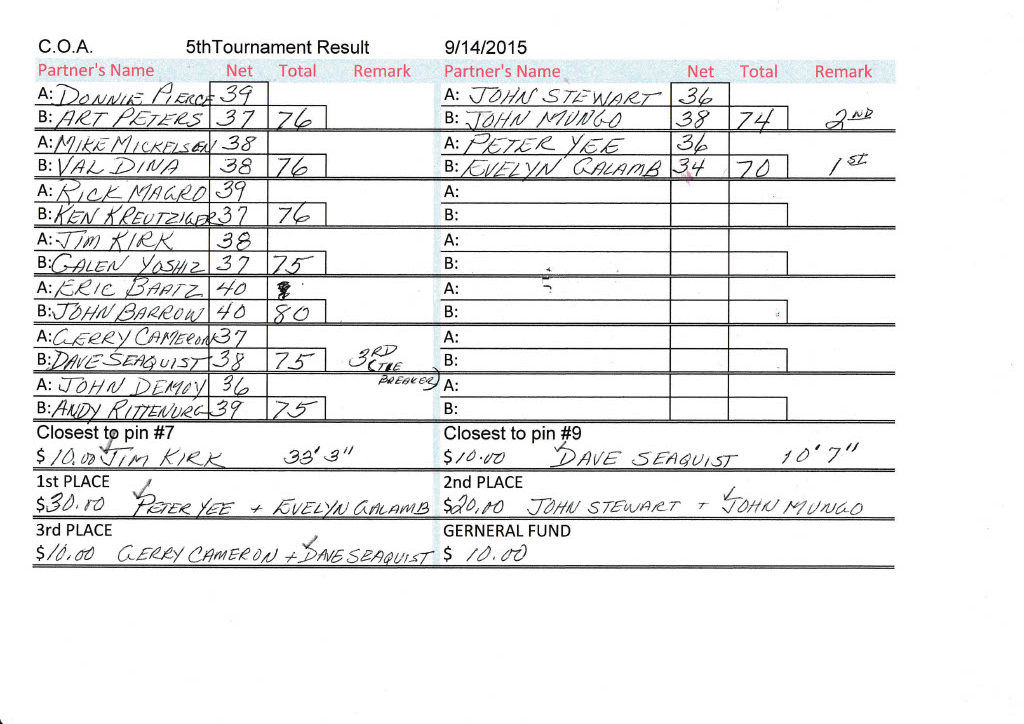 C.O.A. 5thTournament Result 9/14/2015
Partner's Name Net Total Remark Partner's Name Net Total Remark
A: DONNIE PIERCE 39 A: JOHN STEWART 36
B: ART PETERS 37 76 B: JOHN MUNGO 38 74 2ND
A: MIKE MICKELSEN 38 A: PETER YEE 36
B: VAL DINA 38 76 B: EVELYN GALAMB 34 70 1ST
A: RICK MAGRO 39 A:
B: KEN KREUTZIGER 37 76 B:
A: JIM KIRK 38 A:
B: GALEN YOSHIZ 37 75 B:
A: ERIC BAATZ 40 A:
B: JOHN BARROW 40 80 B:
A: GERRY CAMERON 37 A:
B: DAVE SEAQUIST 38 75 3RD (TIE BREAKER) B:
A: JOHN DEMOY 36 A:
B: ANDY RITTENURG 39 75 B:
Closest to pin #7 Closest to pin #9
$10.00 JIM KIRK 33' 3" $10.00 DAVE SEAQUIST 10' 7"
1st PLACE 2nd PLACE
$30.00 PETER YEE + EVELYN GALAMB $20.00 JOHN STEWART + JOHN MUNGO
3rd PLACE GERNERAL FUND
$10.00 GERRY CAMERON + DAVE SEAQUIST $ 10.00